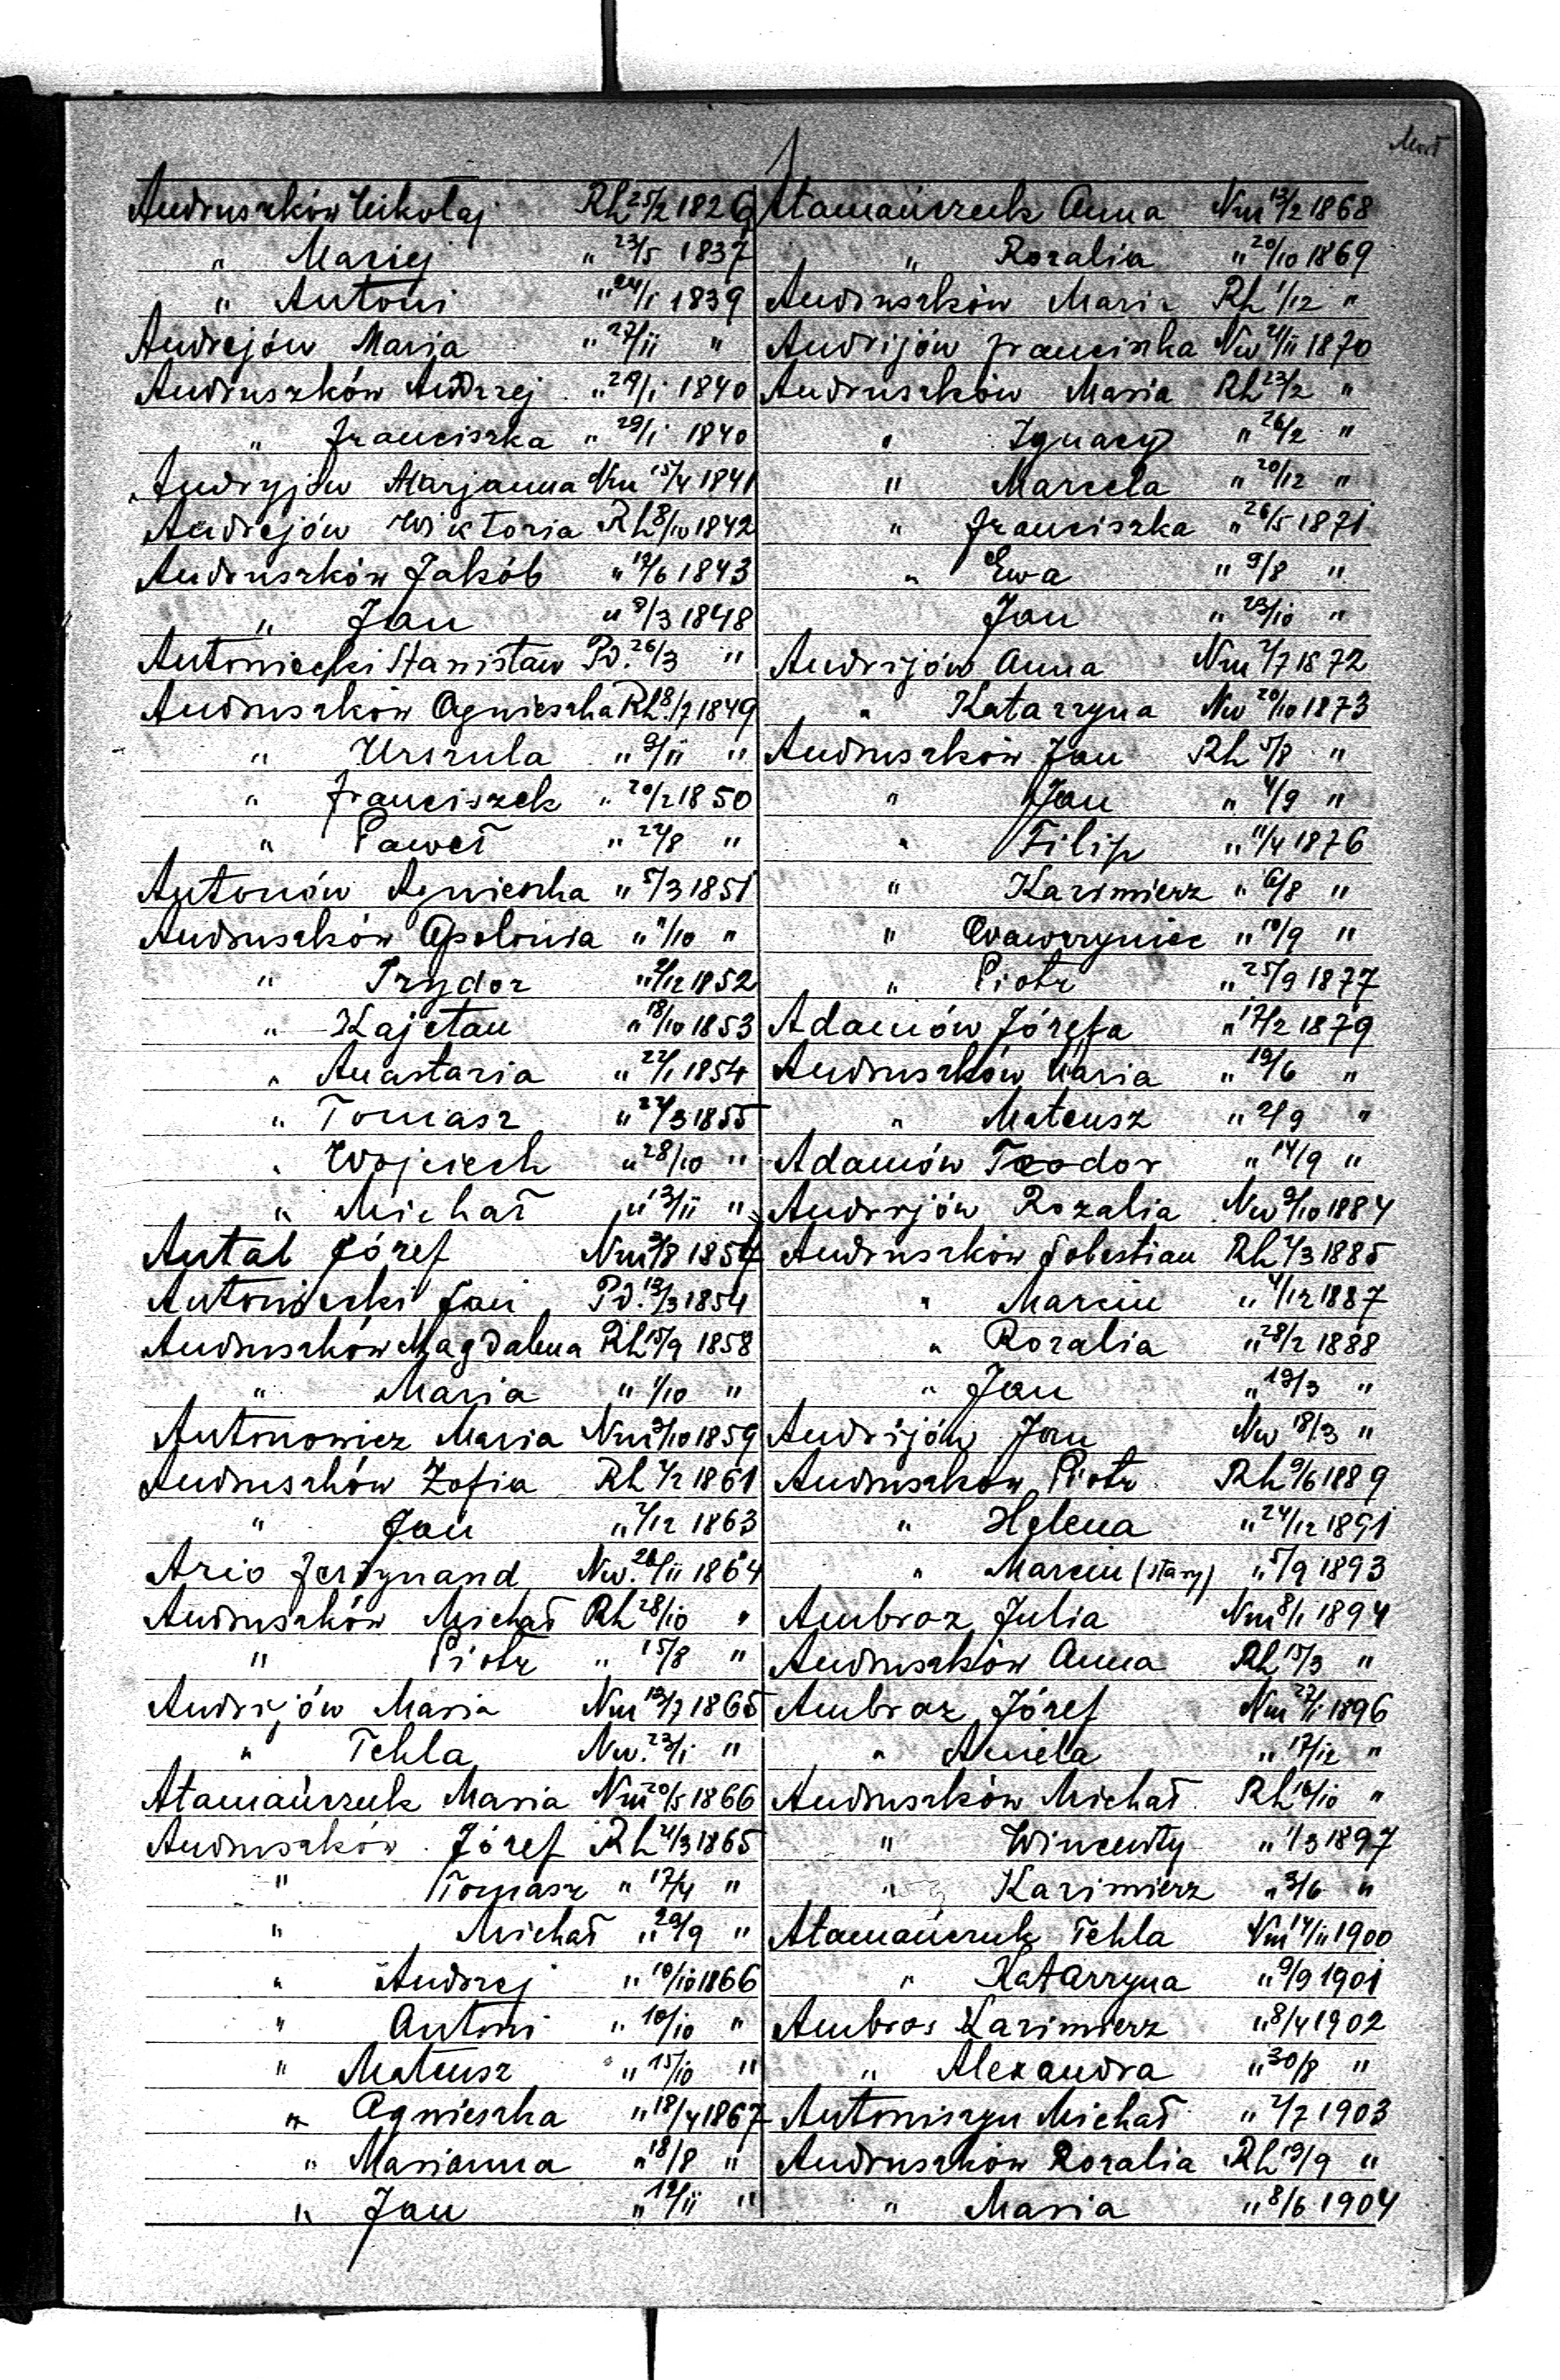 1
Mort
Andruszków Mikołaj Rh 25/2 1826
" Maciej " 23/5 1837
" Antoni " 24/1 1839
Andrejów Marija " 27/11 "
Andruszków Andrzej " 29/1 1840
" Franciszka " 29/1 1840
Andryjów Marjanna Nm 15/4 1841
Andrejów Wiktoria Rh 8/10 1842
Andruszków Jakób " 19/6 1843
" Jan " 8/3 1848
Antoniecki Stanisław Pd. 26/3 "
Andruszków Agnieszka Rh 18/7 1849
" Urszula " 9/11 "
" Franciszek " 20/2 1850
" Paweł " 22/8 "
Antonów Agnieszka " 5/3 1851
Andruszków Apolonia " 7/10 "
" Izydor " 9/12 1852
" Kajetan " 18/10 1853
" Anastazia " 22/1 1854
" Tomasz " 22/3 1855
" Wojciech " 28/10 "
" Michał " 13/11 "
Antal Józef Nm 3/8 1854
Antoniecki Jan Pd. 13/3 1854
Andruszków Magdalena Rh 15/9 1858
" Maria " 1/10 "
Antonowicz Maria Nm 3/10 1859
Andruszków Zofia Rh 4/2 1861
" Jan " 7/12 1863
Ario Ferdynand Nw. 26/11 1864
Andruszków Michał Rh 28/10 "
" Piotr " 15/8 "
Andrijów Maria Nm 13/7 1865
" Tekla Nw. 23/1 "
Atamańczuk Maria Nm 20/5 1866
Andruszków Józef Rh 4/3 1865
" Tomasz " 17/4 "
" Michał " 29/9 "
" Andrzej " 10/10 1866
" Antoni " 10/10 "
" Mateusz " 15/10 "
" Agnieszka " 18/4 1867
" Marianna " 18/8 "
" Jan " 12/11 "
Atamańczuk Anna Nm 13/2 1868
" Rozalia " 20/10 1869
Andruszków Maria Rh 1/12 "
Andrijów Franciszka Nw 4/11 1870
Andruszków Maria Rh 23/2 "
" Ignacy " 26/2 "
" Marcela " 20/12 "
" Franciszka " 26/5 1871
" Ewa " 9/8 "
Jan " 23/10 "
Andrijów Anna Nm 2/7 1872
" Katarzyna Nw 20/10 1873
Andruszków Jan Rh 5/8 "
" Jan " 4/9 "
" Filip " 11/4 1876
" Kazimierz " 6/8 "
" Wawrzyniec " 10/9 "
" Piotr " 25/9 1877
Adamów Józefa " 17/2 1879
Andruszków Maria " 19/6 "
" Mateusz " 2/9 "
Adamów Teodor " 14/9 "
Andrijów Rozalia Nw 9/10 1884
Andruszków Sobestian Rh 7/3 1885
" Marcin " 4/12 1887
" Rozalia " 28/2 1888
" Jan " 19/3 "
Andrijów Jan Nw 18/3 "
Andruszków Piotr Rh 9/6 1889
" Helena " 24/12 1891
" Marcin (stary) " 5/9 1893
Ambroz Julia Nm 8/1 1894
Andruszków Anna Rh 15/3 "
Ambroz Józef Nm 27/1 1896
" Aniela " 17/12 "
Andruszków Michał Rh 16/10 "
" Wincenty " 1/3 1897
" Kazimierz " 3/6 "
Atamańczuk Tekla Nm 14/11 1900
" Katarzyna " 9/9 1901
Ambros Kazimierz " 8/4 1902
" Alexandra " 30/8 "
Antoniszyn Michał " 2/7 1903
Andruszków Rozalia Rh 19/9 "
" Maria " 8/6 1904